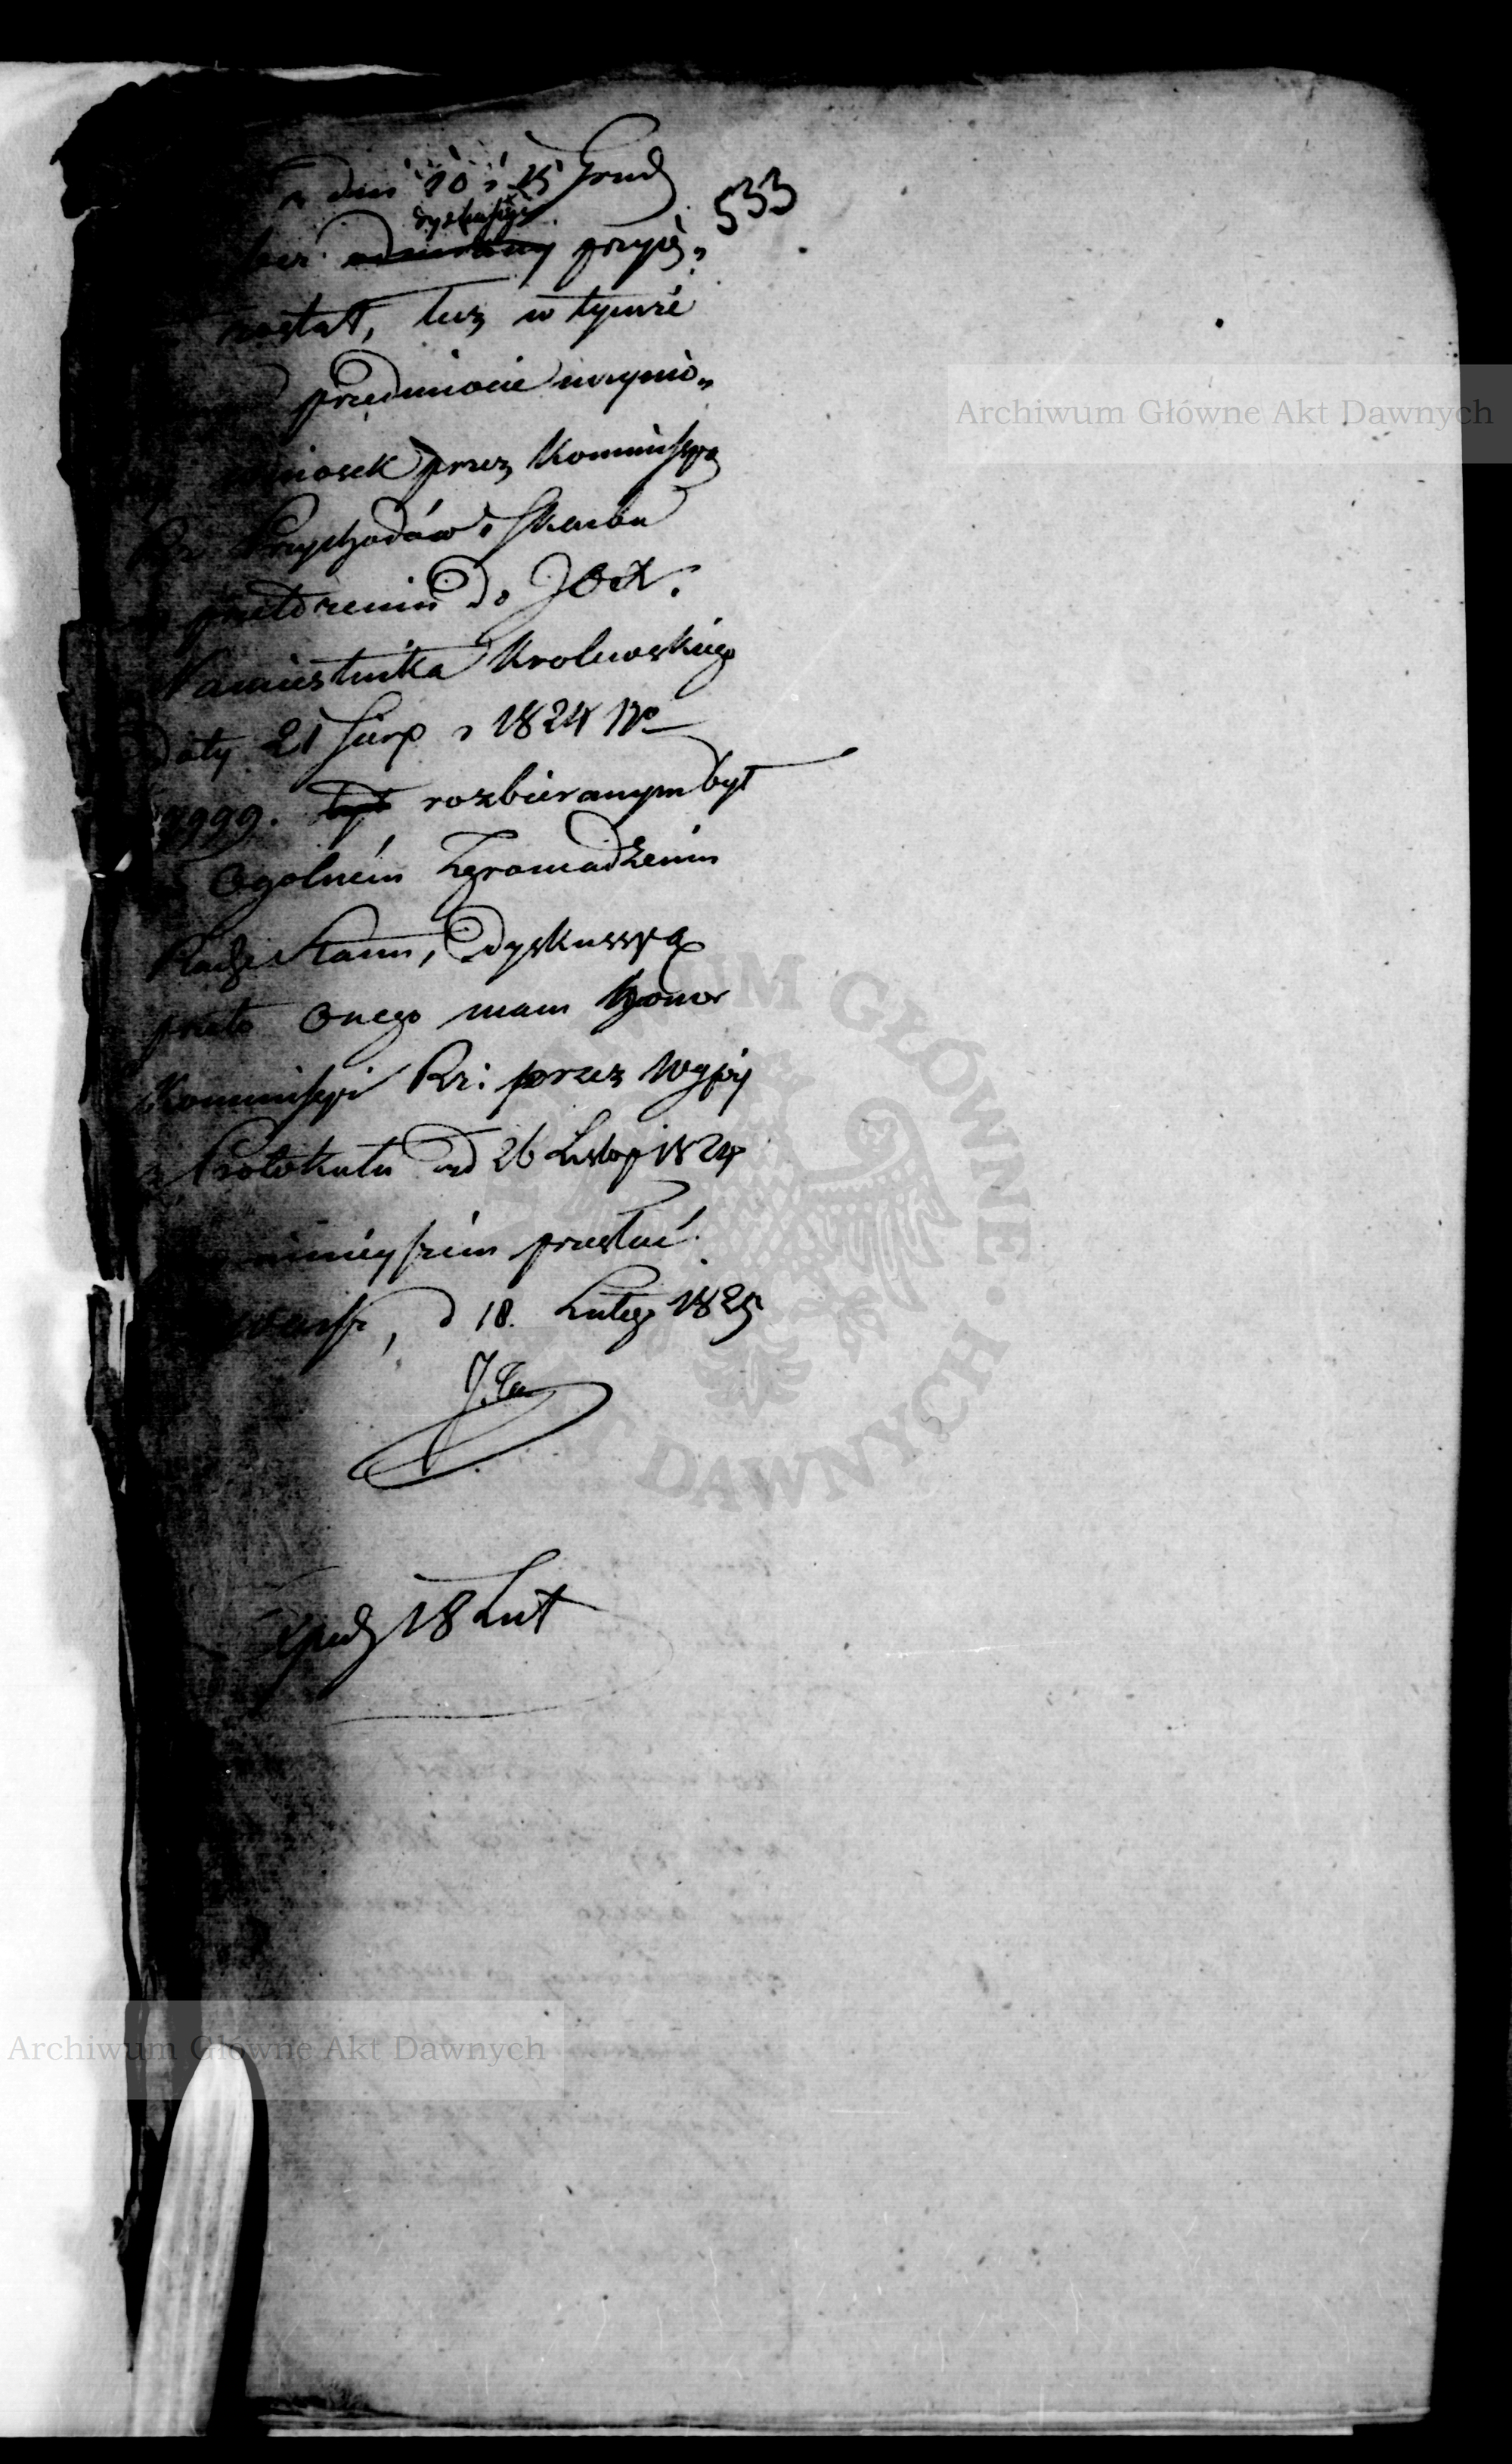 dni 10 i 15 Grud
533
przyię„
został, lecz w tymże
przedmiocie uczynio„
wniosek przez Kommissyą
Rz: Przychodów i Skarbu
w przełożeniu do JOX.
Namiestnika Krolewskiego
daty 21 Sierp r 1824 Nro
9999. był rozbieranym był
na Ogolném Zgromadzeniu
Rady Stanu, Dyskussyą
przeto Onego mam honor
Kommissyi Rz: przez Wypis
z Protokułu od 26 Listop 1824
przy ninieyszém przesłać.
Warsz, d 18. Lutego 1825
Exped 18 Lut
Archiwum Główne Akt Dawnych
ARCHIWUM GŁÓWNE AKT DAWNYCH
Archiwum Główne Akt Dawnych